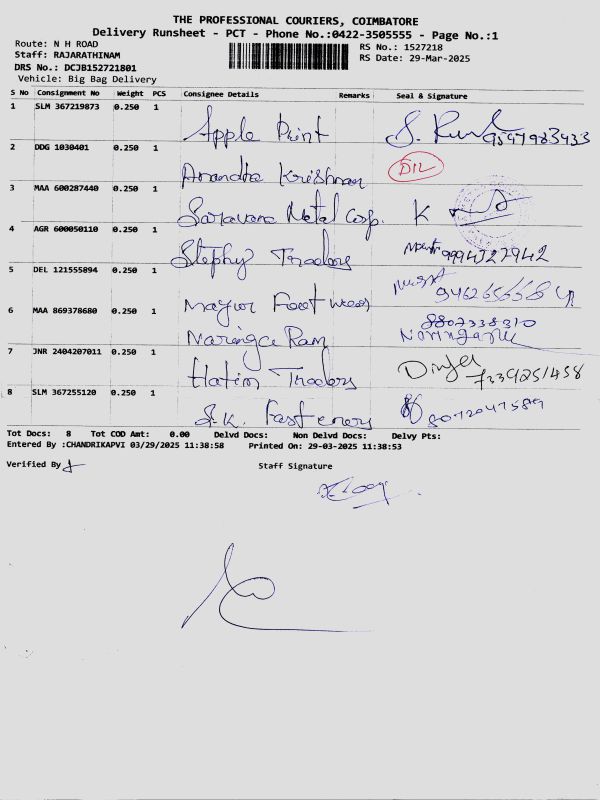 THE PROFESSIONAL COURIERS, COIMBATORE
Delivery Runsheet - PCT - Phone No.:0422-3505555 - Page No.:1
Route: N H ROAD RS No.: 1527218
Staff: RAJARATHINAM RS Date: 29-Mar-2025
DRS No.: DCJB152721801
Vehicle: Big Bag Delivery
S No Consignment No Weight PCS Consignee Details Remarks Seal & Signature
1 SLM 367219873 0.250 1 Apple Print
2 DDG 1030401 0.250 1 Anandha Krishnan DIL
3 MAA 600287440 0.250 1 Saravana Metal Corp.
4 AGR 600050110 0.250 1 Stephy Traders 9994327942
5 DEL 121555894 0.250 1 Mayur Foot wear
6 MAA 869378680 0.250 1 Naringa Ram
7 JNR 2404207011 0.250 1 Hatim Traders 7339251458
8 SLM 367255120 0.250 1 S.K. Fasteners
Tot Docs: 8 Tot COD Amt: 0.00 Delvd Docs: Non Delvd Docs: Delvy Pts:
Entered By :CHANDRIKAPVI 03/29/2025 11:38:58 Printed On: 29-03-2025 11:38:53
Verified By Staff Signature